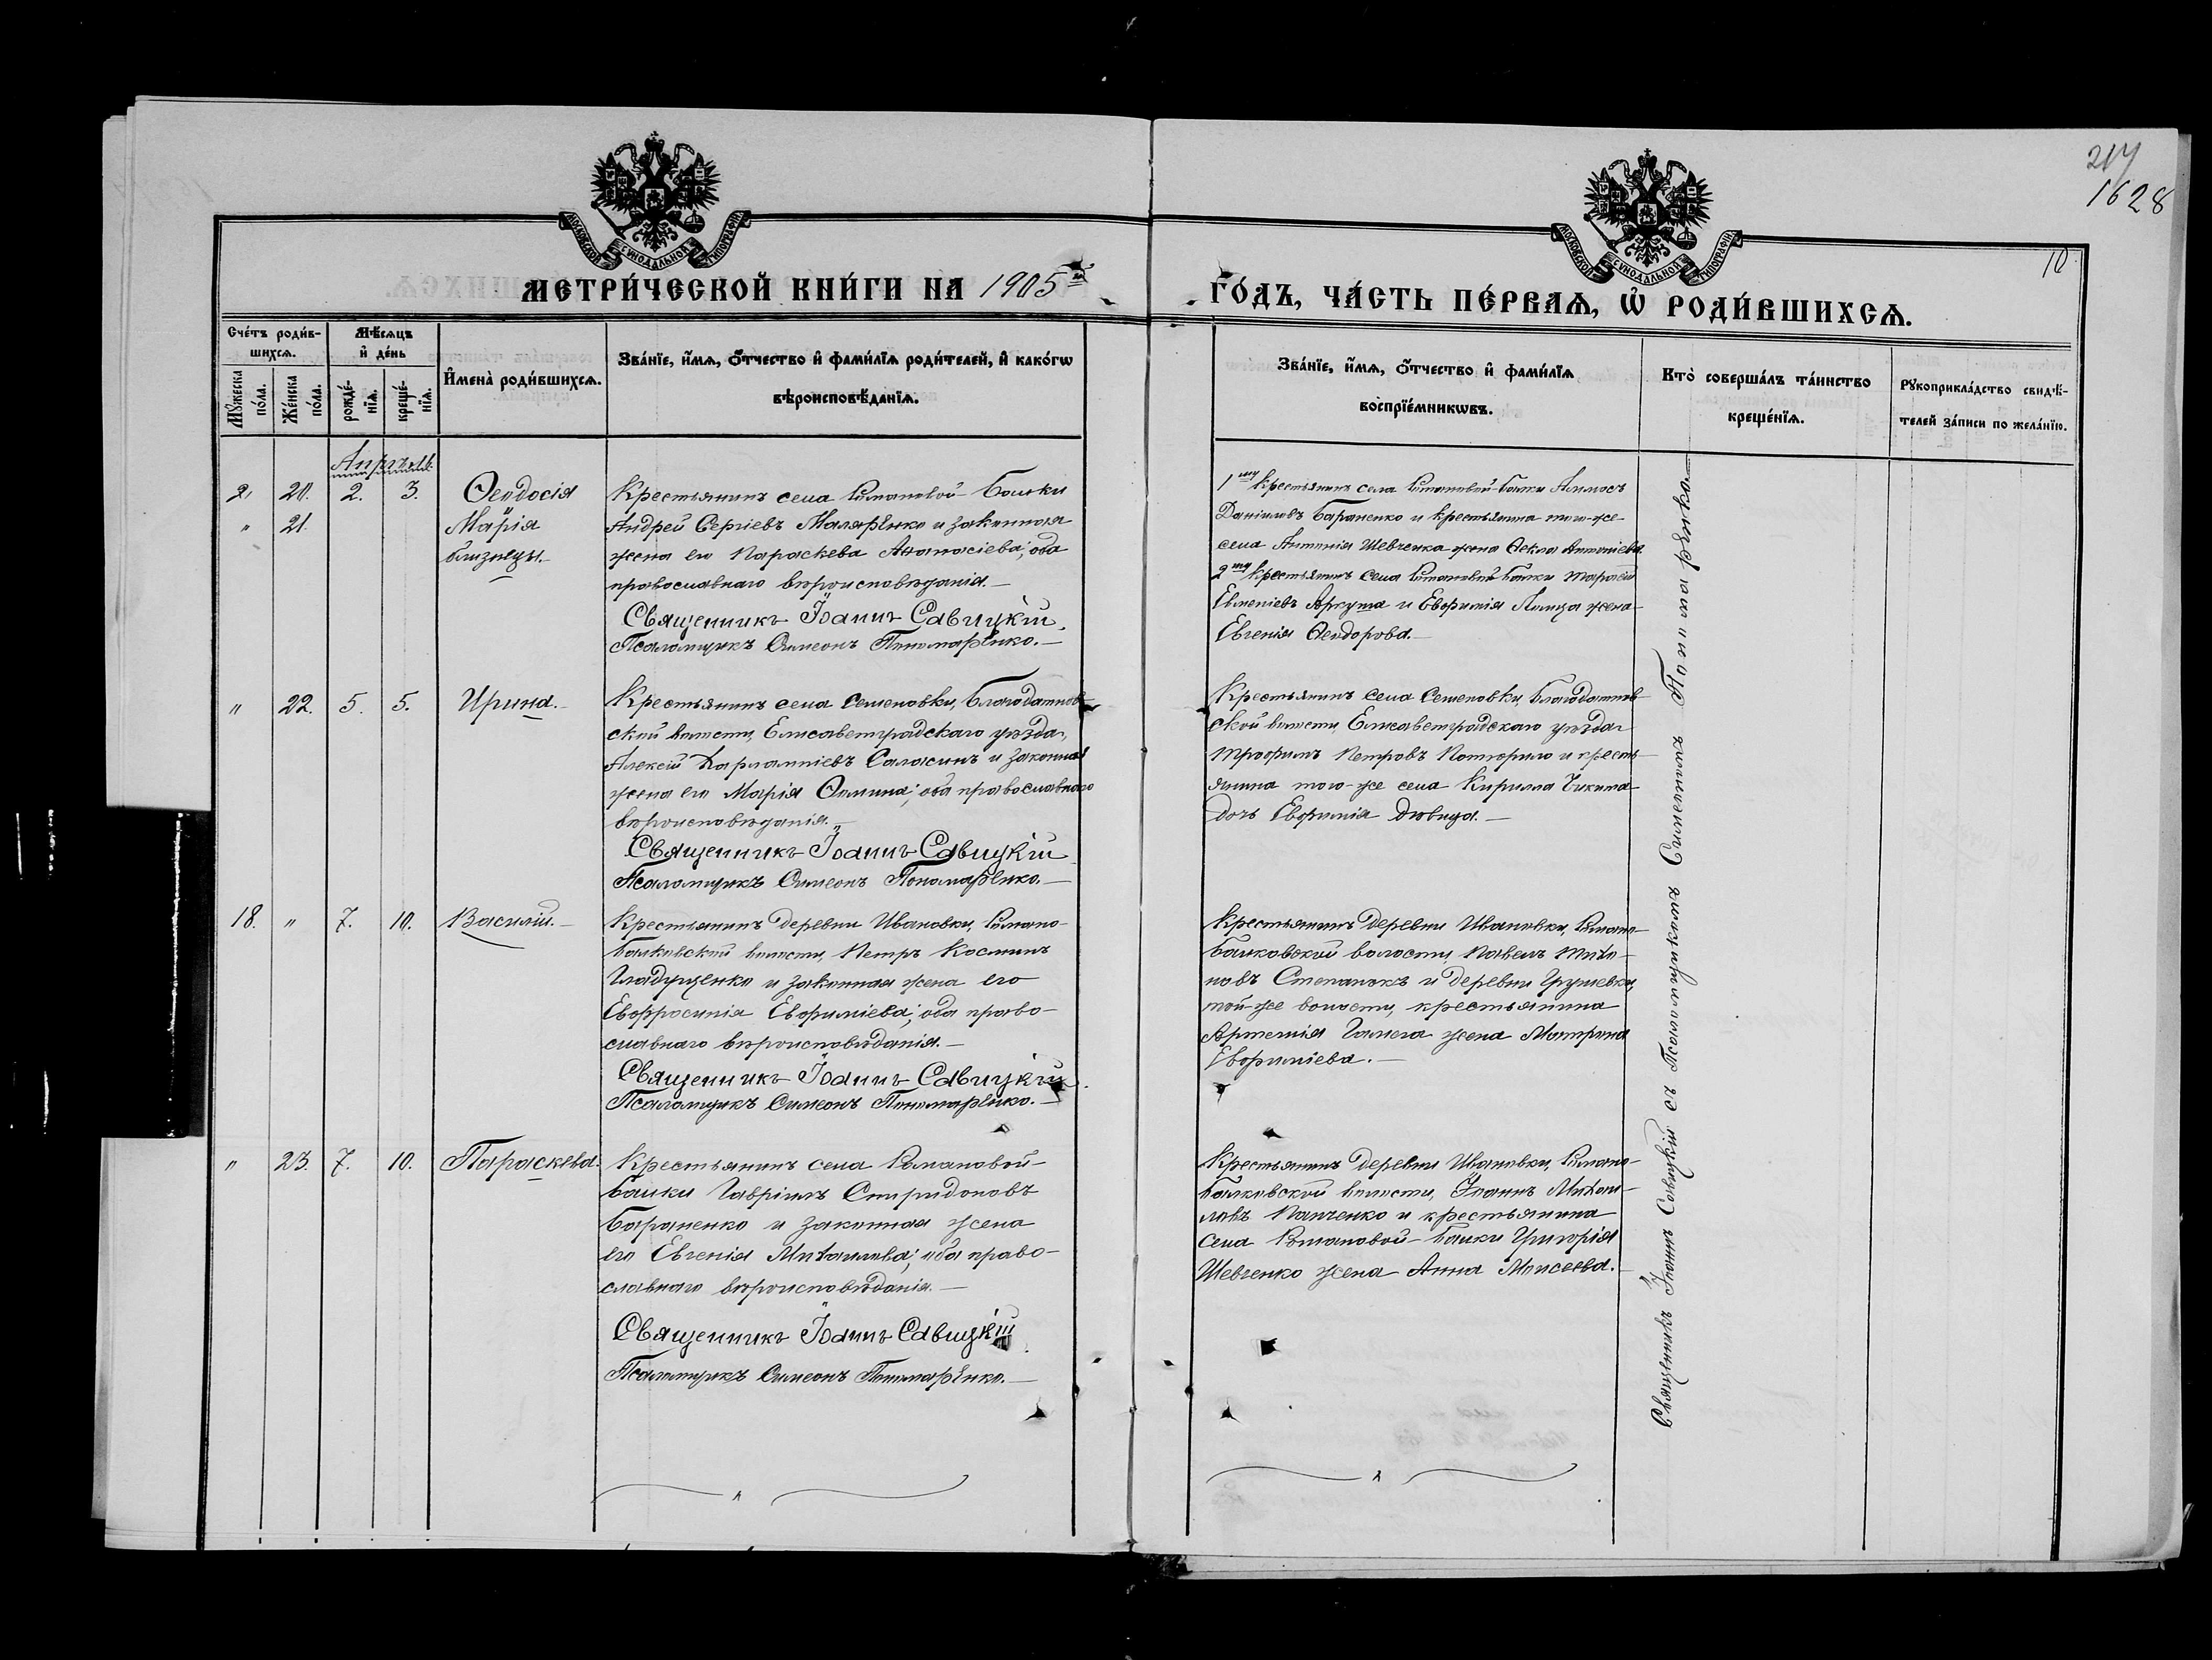 217
1628
10
МОСКОВСКОЙ СѴНОДАЛЬНОЙ ТИПОГРАФІИ
МОСКОВСКОЙ СѴНОДАЛЬНОЙ ТИПОГРАФІИ
МЕТРИ́ЧЕСКОЙ КНИ́ГИ НА 1905
ГО́ДЪ, ЧА́СТЬ ПЕ́РВАѦ, Ѽ РОДИ́ВШИХСѦ.
Сче́тъ роди́в-
шихсѧ.
Мꙋ́жеска
по́ла.
Же́нска
по́ла.
Мѣ́сѧцъ
и҆ де́нь
рожде́-
нїѧ.
креще́-
нїѧ.
И҆мена̀ роди́вшихсѧ.
Зва́нїе, и҆́мѧ, ѻ҆́тчество и҆ фами́лїѧ роди́телей, и҆ како́гѡ
вѣроисповѣ́данїѧ.
Зва́нїе, и҆́мѧ, ѻ҆́тчество и҆ фами́лїѧ
воспрїе́мникѡвъ.
Кто̀ соверша́лъ та́инство
креще́нїѧ.
Рꙋкоприкла́дство свидѣ́-
телей за́писи по жела́нїю.
Апрѣль
20. 2. 3. Ѳеодосія
" 21. Марія
близнецы.
Крестьянинъ села Романовой-Балки
Андрей Сергіевъ Маляренко и законная
жена его Параскева Аѳанасіева; оба
православнаго вѣроисповѣданія.
Священникъ Іоаннъ Савицкій.
Псаломщикъ Симеонъ Пономаренко.
1й крестьянинъ села Романовой-Балки
Даніиловъ Бараненко и крестьянина того-же
села Антонія Шевченка жена Ѳекла Антоніева.
2й крестьянинъ села Романовой Балки Тарасій
Евменіевъ и Евфимія жена
Евгенія Ѳеодорова.
" 22. 5. 5. Ирина.
Крестьянинъ села Семеновки, Благодатнов-
ской волости, Елисаветградскаго уѣзда,
Алексій Харлампіевъ Саласинъ и законная
жена его Марія Ѳомина; оба православнаго
вѣроисповѣданія.
Священникъ Іоаннъ Савицкій
Псаломщикъ Симеонъ Пономаренко.
Крестьянинъ села Семеновки, Благодатнов-
ской волости, Елисаветградскаго уѣзда
Трофимъ Петровъ и кресть-
янина того-же села Кирилла
дочь Евфимія дѣвица.
18. " 7. 10. Василій.
Крестьянинъ деревни Ивановки, Романо-
балковской волости, Петръ Косминъ
Гладущенко и законная жена его
Евфросинія Евфиміева; оба право-
славнаго вѣроисповѣданія.
Священникъ Іоаннъ Савицкій.
Псаломщикъ Симеонъ Пономаренко.
Крестьянинъ деревни Ивановки, Романо-
балковской волости, Павелъ Тихо-
новъ Степанокъ и деревни Грушевки,
той-же волости, крестьянина
Артемія жена Матрона
Евфиміева.
" 23. 7. 10. Параскева.
Крестьянинъ села Романовой-
Балки Гавріилъ Спиридоновъ
Бараненко и законная жена
его Евгенія Михаилова; оба право-
славнаго вѣроисповѣданія.
Священникъ Іоаннъ Савицкій.
Псаломщикъ Симеонъ Пономаренко.
Крестьянинъ деревни Ивановки, Романо-
балковской волости, Іоаннъ Михаи-
ловъ Панченко и крестьянина
села Романовой-Балки Григорія
Шевченко жена Анна Моисеева.
Священникъ Іоаннъ Савицкій съ Псаломщикомъ Симеономъ Пономаренко